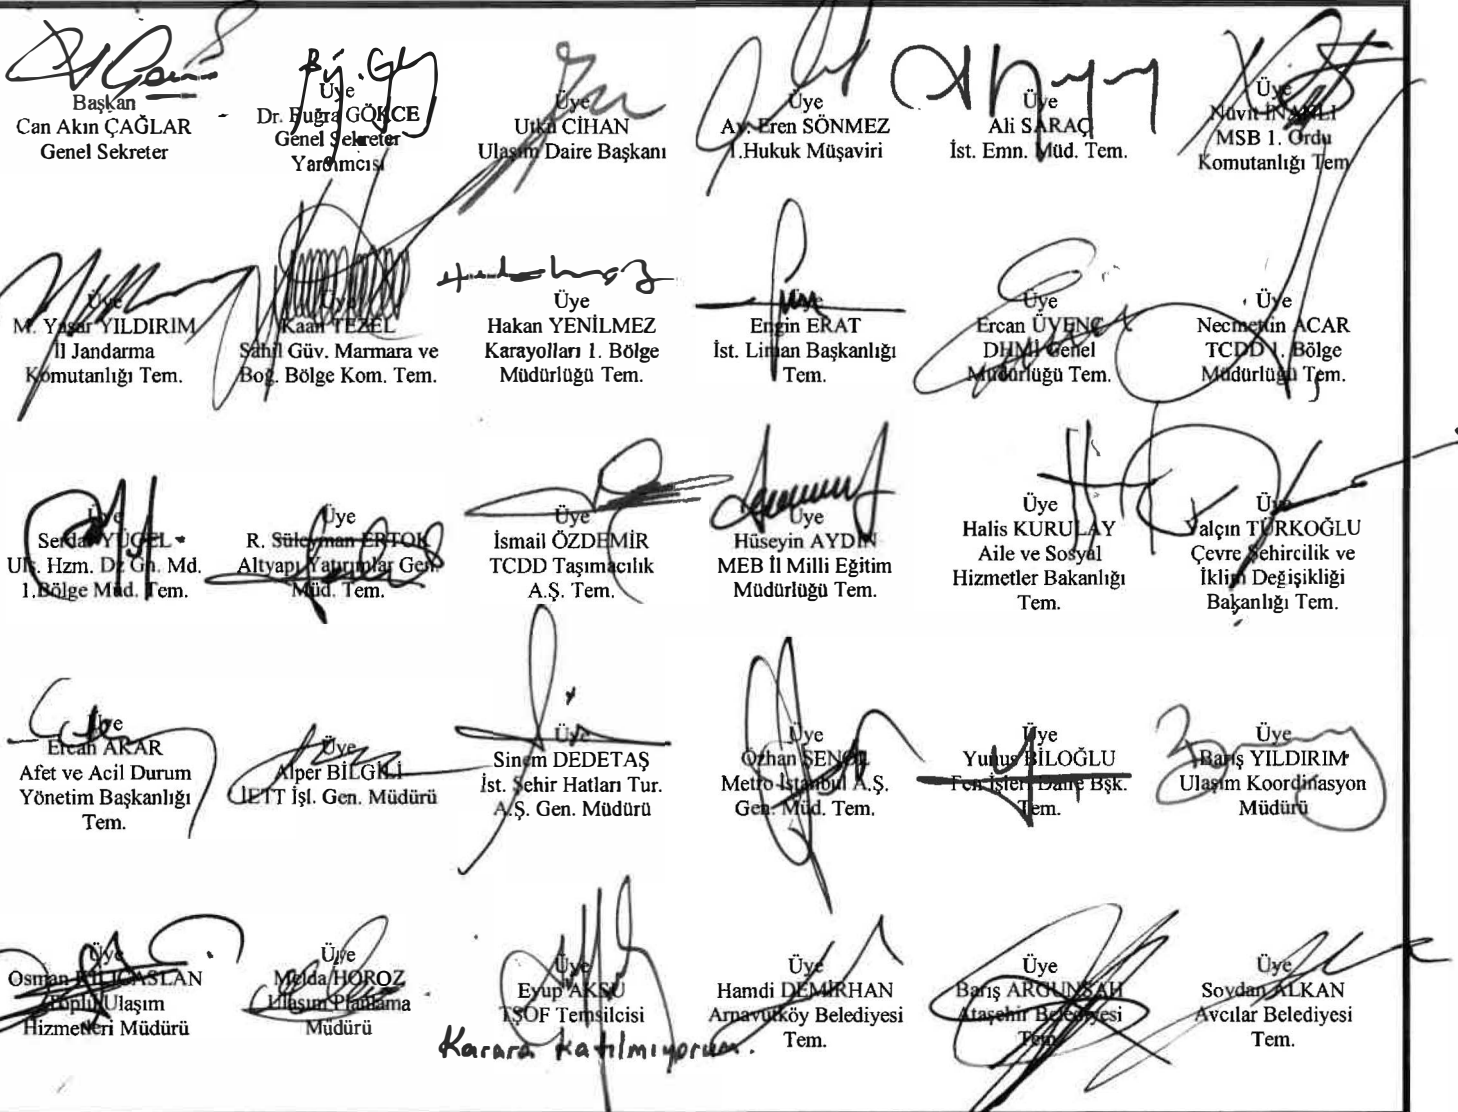 Başkan
Can Akın ÇAĞLAR
Genel Sekreter
Üye
Dr. Buğra GÖKCE
Genel Sekreter
Yardımcısı
Üye
Utku CİHAN
Ulaşım Daire Başkanı
Üye
Av. Eren SÖNMEZ
1.Hukuk Müşaviri
Üye
Ali SARAÇ
İst. Emn. Müd. Tem.
Üye
Nuvit İNANLI
MSB 1. Ordu
Komutanlığı Tem
Üye
M. Yaşar YILDIRIM
İl Jandarma
Komutanlığı Tem.
Üye
Kaan TEZEL
Sahil Güv. Marmara ve
Boğ. Bölge Kom. Tem.
Üye
Hakan YENİLMEZ
Karayolları 1. Bölge
Müdürlüğü Tem.
Üye
Engin ERAT
İst. Liman Başkanlığı
Tem.
Üye
Ercan ÜVENÇ
DHMİ Genel
Müdürlüğü Tem.
Üye
Necmettin ACAR
TCDD 1. Bölge
Müdürlüğü Tem.
Üye
Serdar YÜCEL
Ulş. Hzm. Dz Gn. Md.
1.Bölge Müd. Tem.
Üye
R. Süleyman ERTOK
Altyapı Yatırımlar Gen.
Müd. Tem.
Üye
İsmail ÖZDEMİR
TCDD Taşımacılık
A.Ş. Tem.
Üye
Hüseyin AYDIN
MEB İl Milli Eğitim
Müdürlüğü Tem.
Üye
Halis KURULAY
Aile ve Sosyal
Hizmetler Bakanlığı
Tem.
Üye
Yalçın TÜRKOĞLU
Çevre Şehircilik ve
İklim Değişikliği
Bakanlığı Tem.
Üye
Ercan AKAR
Afet ve Acil Durum
Yönetim Başkanlığı
Tem.
Üye
Alper BİLGİLİ
İETT İşl. Gen. Müdürü
Üye
Sinem DEDETAŞ
İst. Şehir Hatları Tur.
A.Ş. Gen. Müdürü
Üye
Özhan ŞENOL
Metro İstanbul A.Ş.
Gen. Müd. Tem.
Üye
Yunus BİLOĞLU
Fen İşleri Daire Bşk.
Tem.
Üye
Barış YILDIRIM
Ulaşım Koordinasyon
Müdürü
Üye
Osman KILIÇASLAN
Toplu Ulaşım
Hizmetleri Müdürü
Üye
Melda HOROZ
Ulaşım Planlama
Müdürü
Üye
Eyup AKSU
TŞOF Temsilcisi
Karara Katılmıyorum.
Üye
Hamdi DEMİRHAN
Arnavutköy Belediyesi
Tem.
Üye
Barış ARGUNŞAH
Ataşehir Belediyesi
Tem.
Üye
Sovdan ALKAN
Avcılar Belediyesi
Tem.